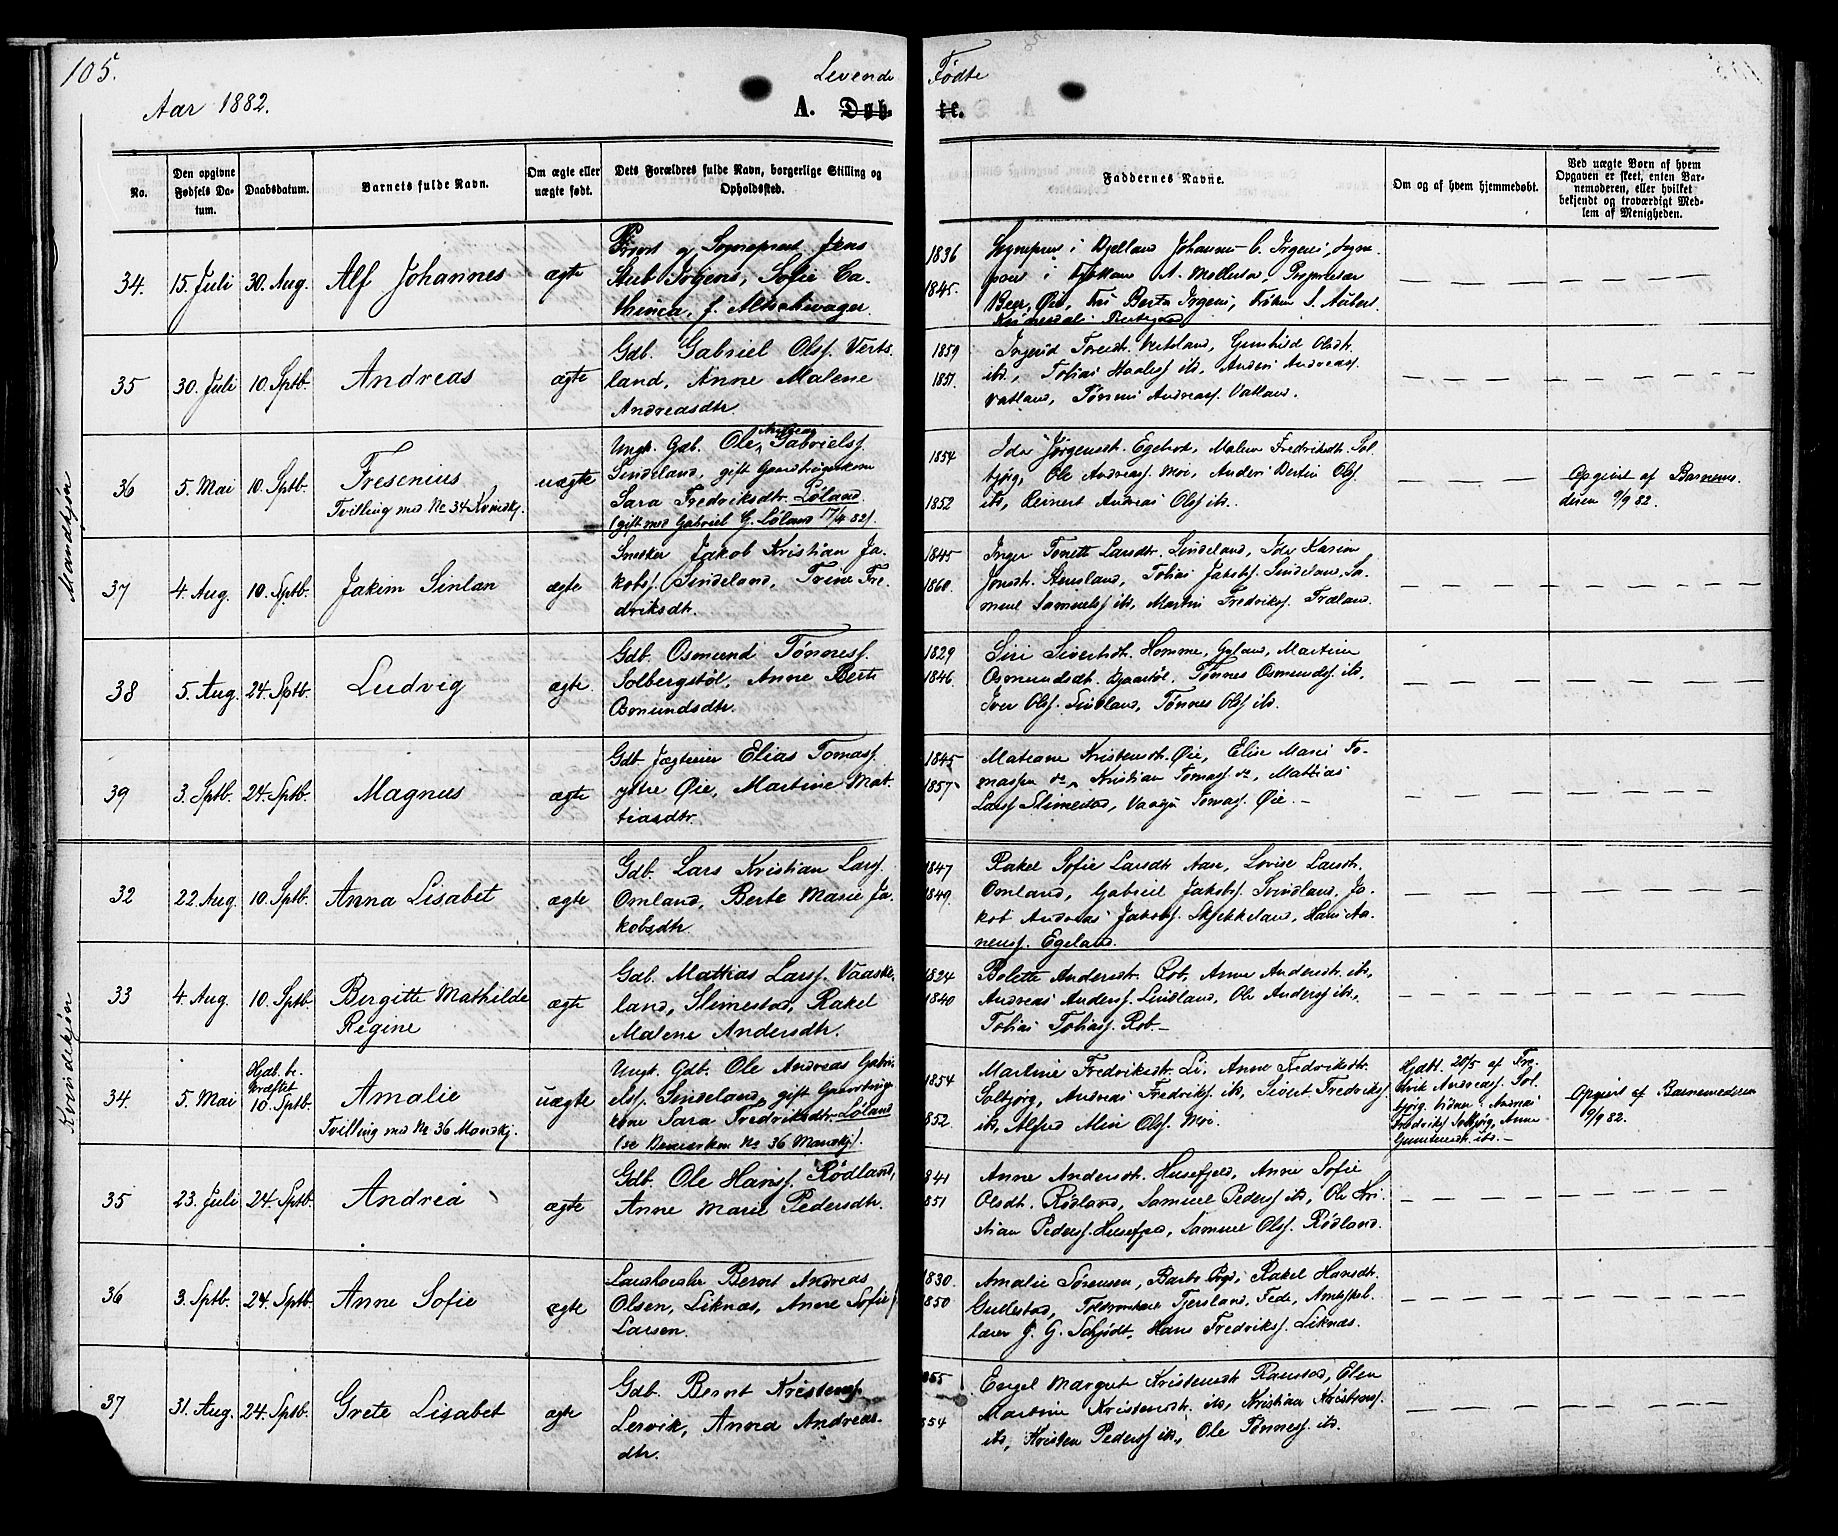 105.
Levende Fødte
Aar 1882.
A. Døbte.
No.
Den opgivne Fødsels Datum.
Daabsdatum.
Barnets fulde Navn.
Om ægte eller uægte født.
Dets Forældres fulde Navn, borgerlige Stilling og Opholdssted.
Faddernes Navne.
Om og af hvem hjemmedøbt.
Ved uægte Børn af hvem Opgaven er skeet, enten Barnemoderen, eller hvilket bekjendt og troværdigt Medlem af Menigheden.
Mandkjøn
34. 15. Juli 30. Aug. Alf Johannes ægte
Provst og Sogneprest Jens
Stub Irgens, Sofie Ca-
thinca, f. Altschwager.
1836
1845.
Sogneprest i Bjelland Johannes C. Irgens, Sogne-
Berta Irgens, Frøken S. Aubert
35 30. Juli 10. Sptb. Andreas ægte
Gdb. Gabriel Olsf. Verts-
land, Anne Malene
Andreasdtr.
1859
1851.
Ingerid Toresdt. Vertsland, Gunhild Olsdt.
ibd., Tobias ibd., Anders Andreasf.
Vatland, Tønnes Andreasf. Vatland.
36 5. Mai 10. Sptb. Fresenius uægte
Tvilling med No 34 Kvindkj.
Ungk. Gdb. Ole Andreas Gabrielsf.
Sindeland, gift Gaardbrugerkone
Sara Fredriksdtr. Løland.
(gift med Gabriel G. Løland 17/4 82).
1854
1852
Ida Jørgensdt. Egebod, Malene Fredriksdt. Sol-
bjørg, Ole Andreasf. Moi, Anders Bertin Olsf.
ibd, Reinert Andreas Olsf ibd.
Opgivet af Barnemo-
deren 9/9 82.
37 4. Aug. 10. Sptb. Jakim Sinlan ægte
Snedker Jakob Kristian Ja-
kobsf. Sindeland, Trine Fre-
driksdtr.
1845
1860.
Inger Tonette Larsdtr. Sindeland, Ida Karine
Jonsdt. Stensland, Tobias Jakobsf. Sindeland, Sa-
muel Samuelsf ibd, Martin Fredriksf. Træland.
38 5. Aug. 24. Sptb. Ludvig ægte.
Gdb. Osmund Tønnesf.
Solbergstøl, Anne Berte
Osmundsdtr.
1829
1846
Siri Sivertsdt. Homme, Gyland, Martine
Osmundsdt. Tønnes Osmundsf. ibd,
Iver Olsf. Sindland, Tønnes Olsf ibd.
39 3. Sptb. 24. Sptb. Magnus ægte
Gdb. Jægteier Elias Tomasf
ytre Øie, Martine Mat-
tiasdtr.
1845
1857.
Mateane Kristensdt. Øie, Elise Marie To-
masen do, Kristian Tomasf. do, Mattias
Larsf Slimestad, Vaagn Tomasf. Øie.
Kvindekjøn
32 22. Aug. 10. Sptb. Anna Lisabet ægte
Gdb. Lars Kristian Larsf
Omland, Berte Marie Ja-
kobsdtr.
1847
1849.
Rakel Sofie Larsdt. Aase, Lovise Larsdt.
Omland, Gabriel Jakobsf. Svindland, Ja-
kob Andreas Jakobsf. Skjekkeland, Hans Aa-
nensf. Egeland.
33 4 Aug. 10. Sptb. Bergitte Mathilde ægte
Regine
Gdb. Mattias Larsf. Vaaske-
land, Slimestad, Rakel
Malene Andersdtr.
1824
1840
Bolette Andersdt. Rob, Anne Andersdt. ibd,
Andreas Andersf. Lindland, Ole Andersf ibd,
Tobias Tobiasf. Rob.
34. 5. Mai
Hjdb. be-
kræftet
10. Sptb.
Amalie uægte
Tvilling med No 36 Mandkj.
Ungk. Gdb. Ole Andreas Gabri-
elsf. Sindeland, gift Gaardbruger-
kone Sara Fredriksdtr. Løland
(se Bemærkn. No 36 Mandkj).
1854
1852.
Martine Fredriksdt. Li, Anne Fedriksdtr.
Solbjørg, Andreas Fredriksf. ibd, Sivert Fredriksf
ibd, Alfred Olsf. Moi.
Hjdbt. 20/5 af Fre-
drik Andreasf. Sol-
bjørg. Vidner: Andreas
Fredriksf Solbjørg, Anne
Gunstensdt. ibd.
Opgivet af Barnemoderen
10/9 82.
35 23. Juli 24. Sptb. Andrea ægte
Gdb. Ole Hansf. Rødland,
Anne Marie Pedersdtr.
1841
1851
Anne Andersdt. Husefjeld, Anne Sofie
Olsdt. Rødland, Samuel Pedersf ibd, Ole Kri-
stian Pedersf. Husefjeld, Samuel Olsf. Rødland.
36 3. Sptb. 24. Sptb. Anne Sofie ægte
Bernt Andreas
Olsen, Liknæs, Anne Sofie f.
Larsen.
1830.
1850
Amalie Sørensen, Rakel Hansdt.
Gullestad, Tjersland, Fede, Amtsskole-
lærer J. G. Schjødt, Hans Fredriksf. Liknæs.
37 31. Aug. 24. Sptb. Grete Lisabet ægte
Gdb. Bernt Kristensf.
Lervik, Anna Andreas-
dtr.
1855
1854
Engel Margrete Kristensdt. Ramstad, Elen
Martine Kristensdt. ibd, Kristian Kristensf.
ibd, Kristen Pedersf ibd, Ole Tønnesf. ibd.